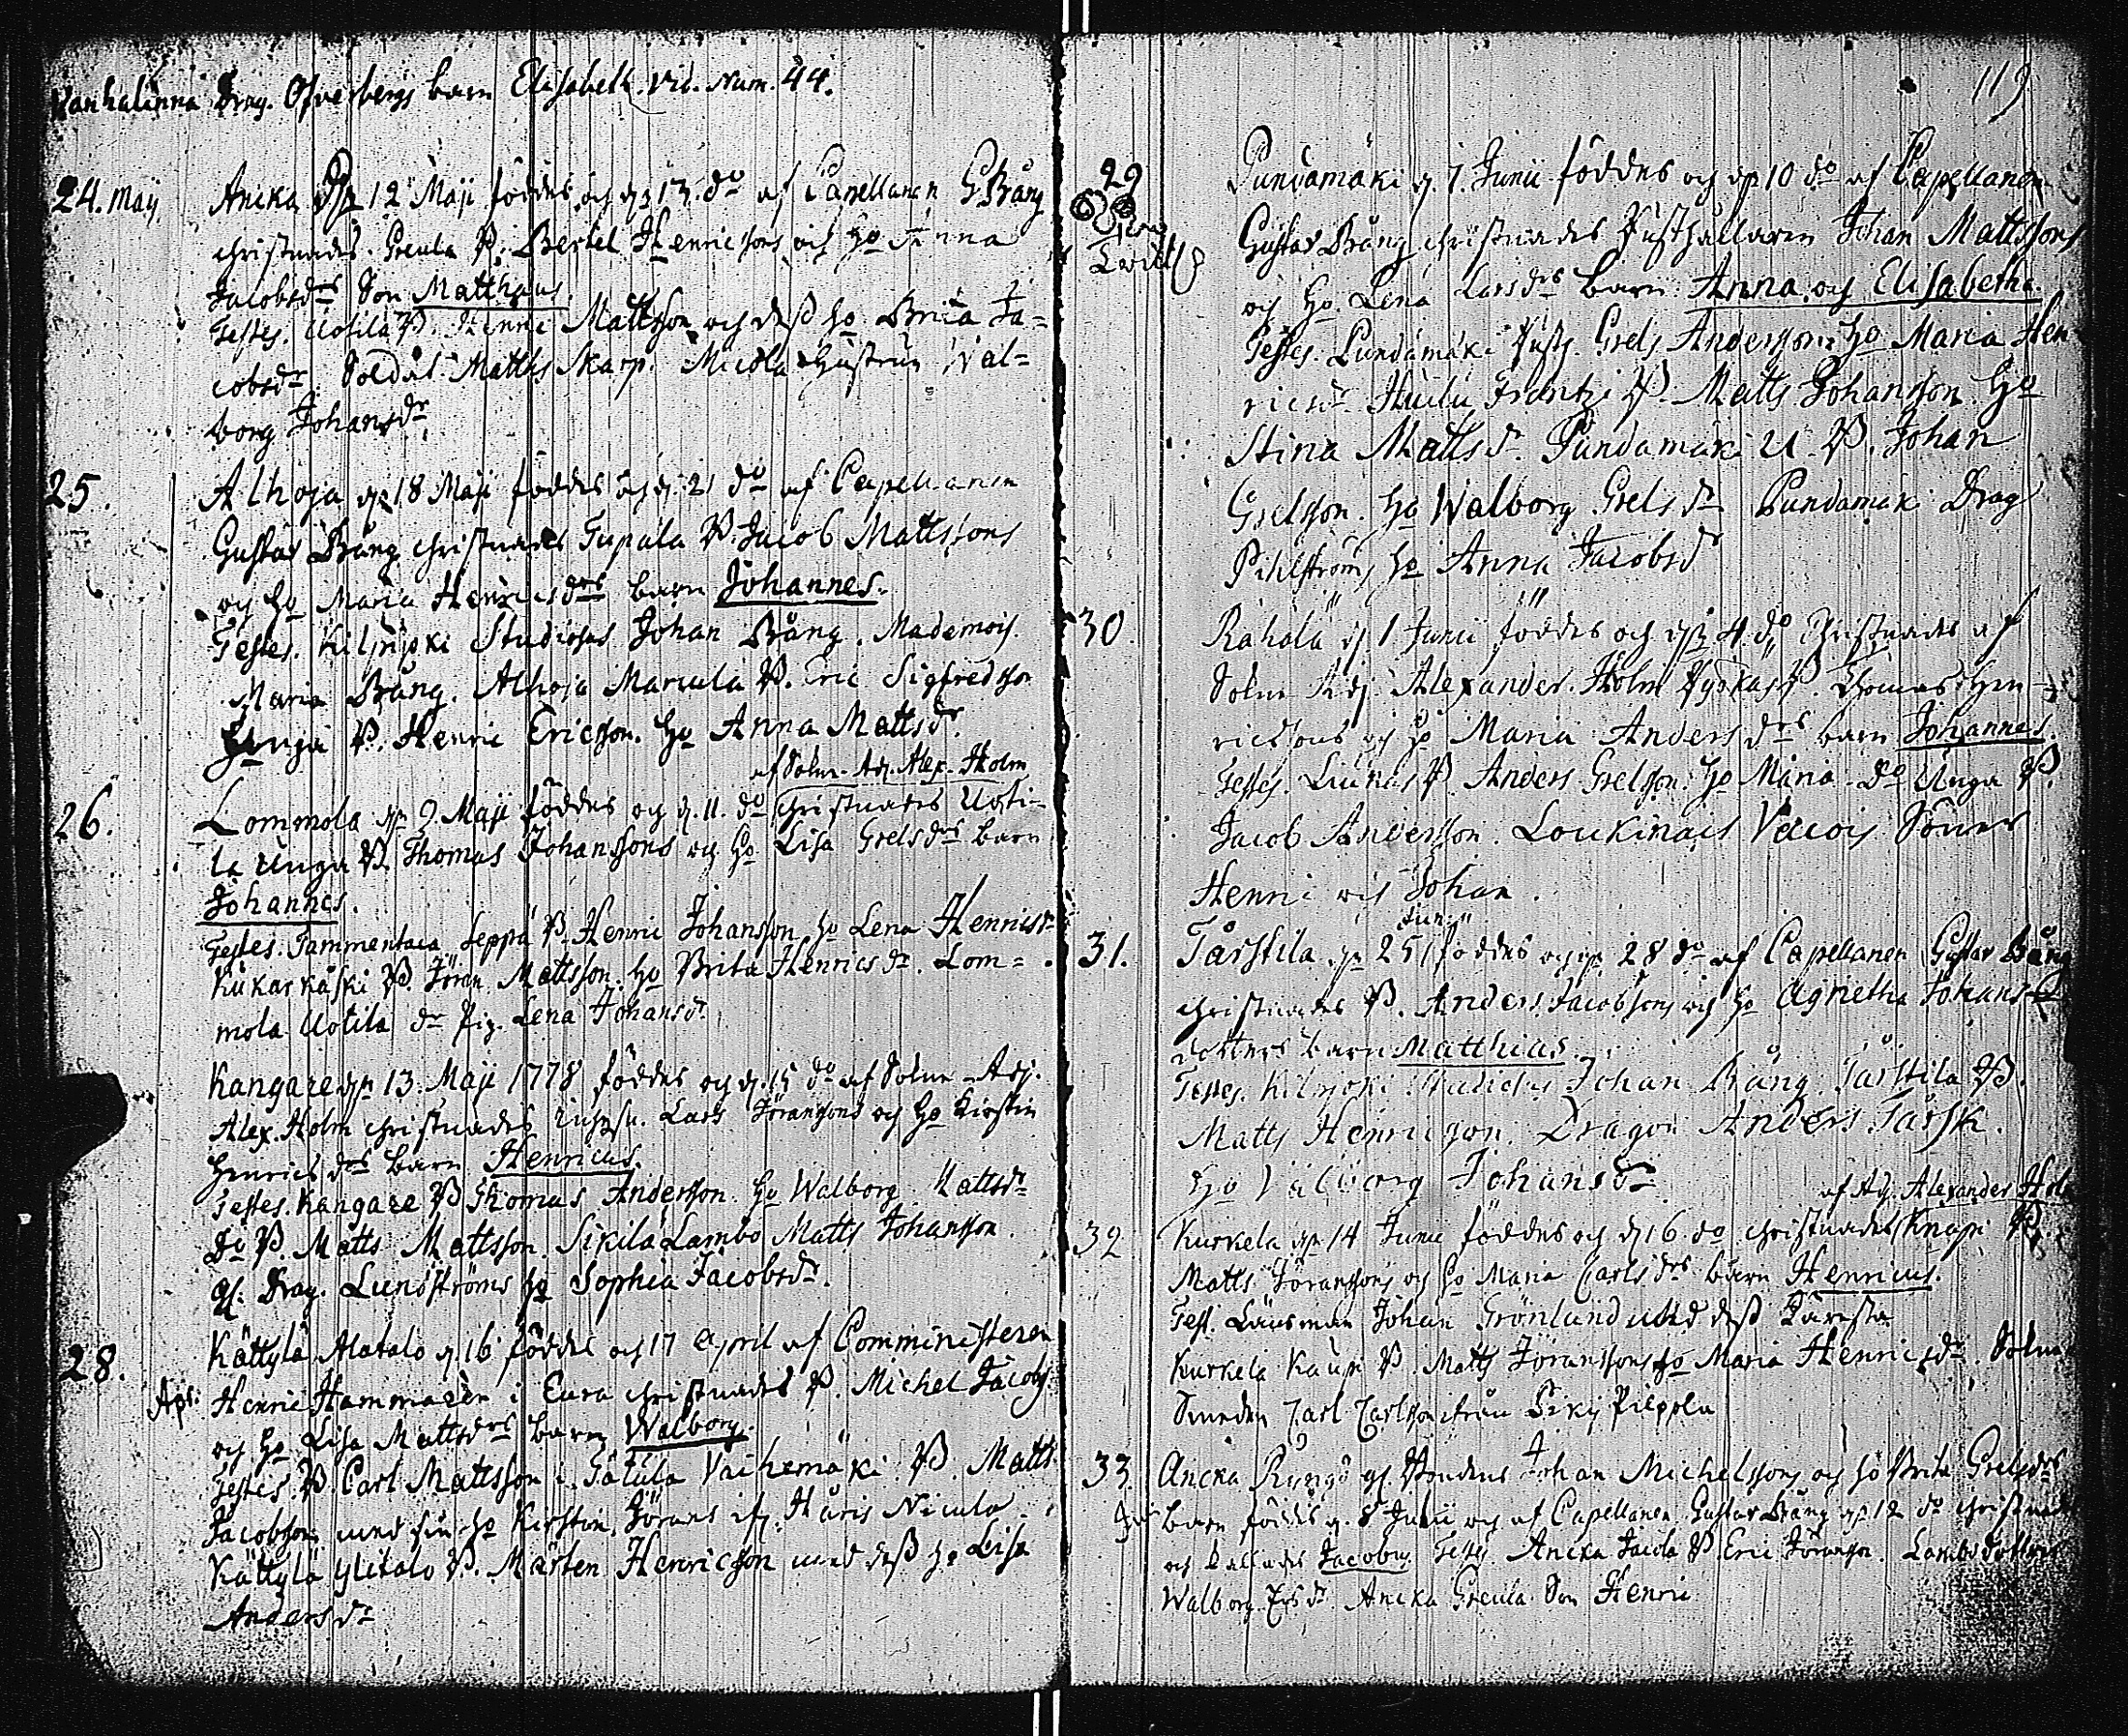 Vanhalinna Drag. Ofverbergs barn Elisabeth. vid. Num. 44.
24. Maij. Ancka d. 12 Maji föddes och d. 13. do af Capellanen G Bång
christnades. Greula B. Bertel Henricssons och ho Anna
Jacobsdrs Son Matthæus.
Testes. Uotila B. Henric Mattsson och dess ho Brita Ja=
cobsdr. Soldat Matths Skarp. Micola Hustrun Wal=
borg Johansdr
25. Alhoja d. 18 Maji föddes och d. 21 do af Capellanen
Gustav Bång christnades Tupala B. Jacob Mattssons
och ho Maria Henricsdrs barn Johannes.
Testes. Kilpijoki Studiosus Johan Bång. Mademois.
Maria Bång. Alhoja Marcula B. Eric Sigfredsson
Unga B. Henric Ericsson. ho Anna Mattsdr.
af Solnr. Adj. Alex. Holm
26. Lommola d. 9. Maji föddes och d. 11. do christnades Uoti-
la Unga B. Thomas Johanssons och ho Lisa Grelsdrs barn
Johannes.
Testes. Tammentaca Seppä B. Henric Johansson ho Lena Henricsdr
Kukarkäski B. Jöran Mattsson. ho Brita Henricsdr. Lom=
mola Uotila dr Pig. Lena Johansdr
Kangare d. 13. Maji 1778 föddes och d. 15 do af Solnr. Adj.
Alex. Holm christnades Lars Jöranssons och ho Kirstin
Henricsdrs barn Henricus
Testes. Kangare B Thomas Andersson. ho Walborg Mattsdr
Do B. Matts Mattsson. Sikilä Lambo Matts Johansson
gl. Drag. Lundströms ho Sophia Jacobsdr.
28. Kättylä Alatalo d. 16 föddes och 17 April af Comministeren
Apr. Henric Hammaren i Eura christnades B. Michel Jacobs.
och ho Lisa Mattsdrs barn Walborg.
Testes B. Carl Mattsson i Tatula Vaihemäki B. Matts
Jacobsson med sin ho Kirstin, Jörans Häris Nicula
Kättylä Ylitalo B. Mårten Henricsson med dess ho Lisa
Andersdr
119
29 Pundamäki d. 7. Junii föddes och d. 10 do af Capellanen
Gustav Bång christnades Rusthållaren Johan Mattssons
och ho Lena Larsdrs barn Anna och Elisabetha.
Testes. Pundamäki Rusth. Grels Andersson ho Maria Hen
ricsdr. Huilu Frantzi B. Matts Johansson. ho
Stina Mattsdr. Pundamäki U. B. Johan
Grelsson. ho Walborg Grelsdr Pundamäki Drag
Pihlström, ho Anna Jacobsdr
30 Rahola d. 1 Junii föddes och d. 4. do Christnades af
Solnr Adj. Alexander Holm B. Thomas Hen-
ricssons och ho Maria Andersdrs barn Johannes.
Testes. B. Anders Grelsson. ho Maria. Do Unga B.
Jacob Andersson. Loukinais Söner
Henric och Johan.
Junii
31. Tårstila d. 25 föddes och d. 28 do af Capellanen Gustav Bång
christnades B. Anders Jacobssons och ho Agnetha Johans-
dotters barn Matthias.
Testes. Kilpijoki Studiosus Johan Bång Tårstila B.
Matts Henricsson. Dragon Anders Tårsk.
ho Walborg Johansdr
af Adj. Alexander Holm
32 Kurkela d. 14 Junii föddes och d. 16. do christnades Knapi B.
Matts Jöranssons och ho Maria Carlsdrs barn Henricus.
Test. Länsman Johan Grönlund med dess
Kurkela B. Matts Jöranssons ho Maria Henricsdr.
Smeden Carl Carlsson från Piippola
33. Ancka Rungo gl. Bondens Johan Michelssons och ho Brita Grelsdrs
barn föddes d. 8 Julii och af Capellanen Gustav Bång d. 12 do christnades
och kallades Jacobus. Testes. Ancka Jacola B. Eric Jöransson.
Walborg Ersdr. Ancka Greula Son Henric